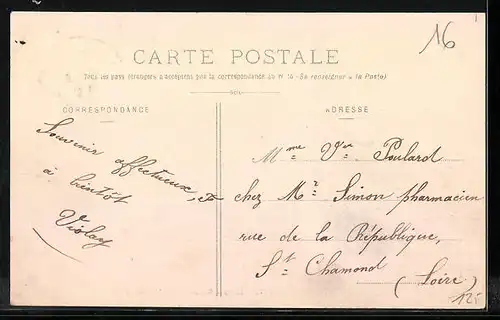 16
CARTE POSTALE
Tous les pays étrangers n'acceptent pas la correspondance au Rto (Se renseigner à la Poste)
CORRESPONDANCE
ADRESSE
Souvenir affectueux, et
à bientôt
Violay
Mme Vve Poulard
chez Mr Simon pharmacien
rue de la République,
St Chamond
(Loire)
125